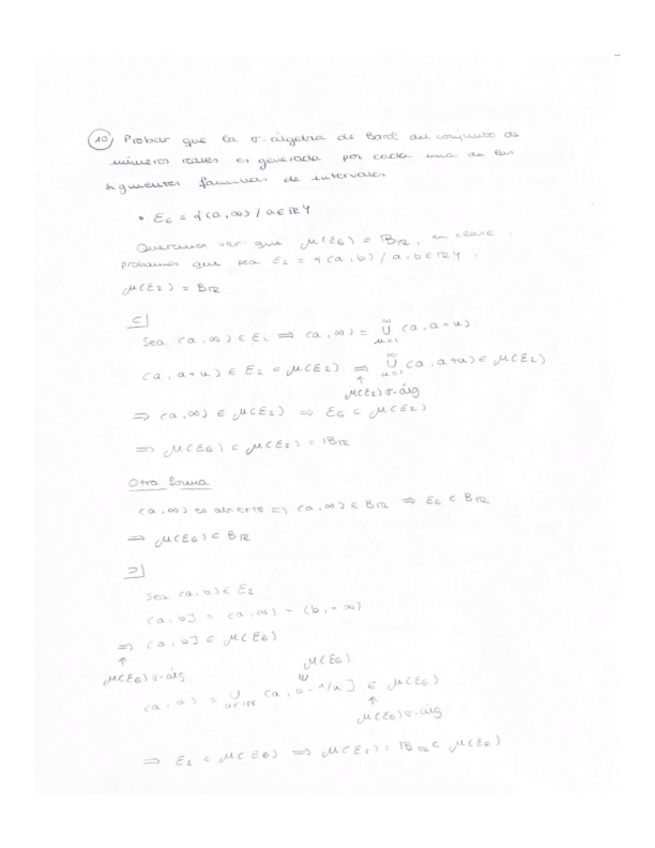 10) Probar que la σ-álgebra de Borel del conjunto de
números reales es generada por cada una de las
siguientes familias de intervalos
• Ɛ6 = {(a, ∞) / a ∈ ℝ}
Queremos ver que μ(Ɛ6) = Bℝ, en clase
probamos que sea Ɛ2 = {(a, b) / a, b ∈ ℝ}.
μ(Ɛ2) = Bℝ
⊂|
Sea (a, ∞) ∈ Ɛ6 ⟹ (a, ∞) = ∪_{n=1}^{∞} (a, a+n).
(a, a+n) ∈ Ɛ2 ⊂ μ(Ɛ2) ⟹ ∪_{n=1}^{∞} (a, a+n) ∈ μ(Ɛ2)
↑
μ(Ɛ2) σ-álg
⟹ (a, ∞) ∈ μ(Ɛ2) ⟹ Ɛ6 ⊂ μ(Ɛ2)
⟹ μ(Ɛ6) ⊂ μ(Ɛ2) = Bℝ
Otra forma
(a, ∞) es abierto ⟹ (a, ∞) ∈ Bℝ ⟹ Ɛ6 ⊂ Bℝ
⟹ μ(Ɛ6) ⊂ Bℝ
⊃|
Sea (a, b) ∈ Ɛ2
(a, b] = (a, ∞) - (b, ∞)
⟹ (a, b] ∈ μ(Ɛ6)
↑
μ(Ɛ6) σ-álg
μ(Ɛ6)
(a, b) = ∪_{n∈ℕ} (a, b - 1/n] ∈ μ(Ɛ6)
↑
μ(Ɛ6) σ-álg
⟹ Ɛ2 ⊂ μ(Ɛ6) ⟹ μ(Ɛ2) = Bℝ ⊂ μ(Ɛ6)